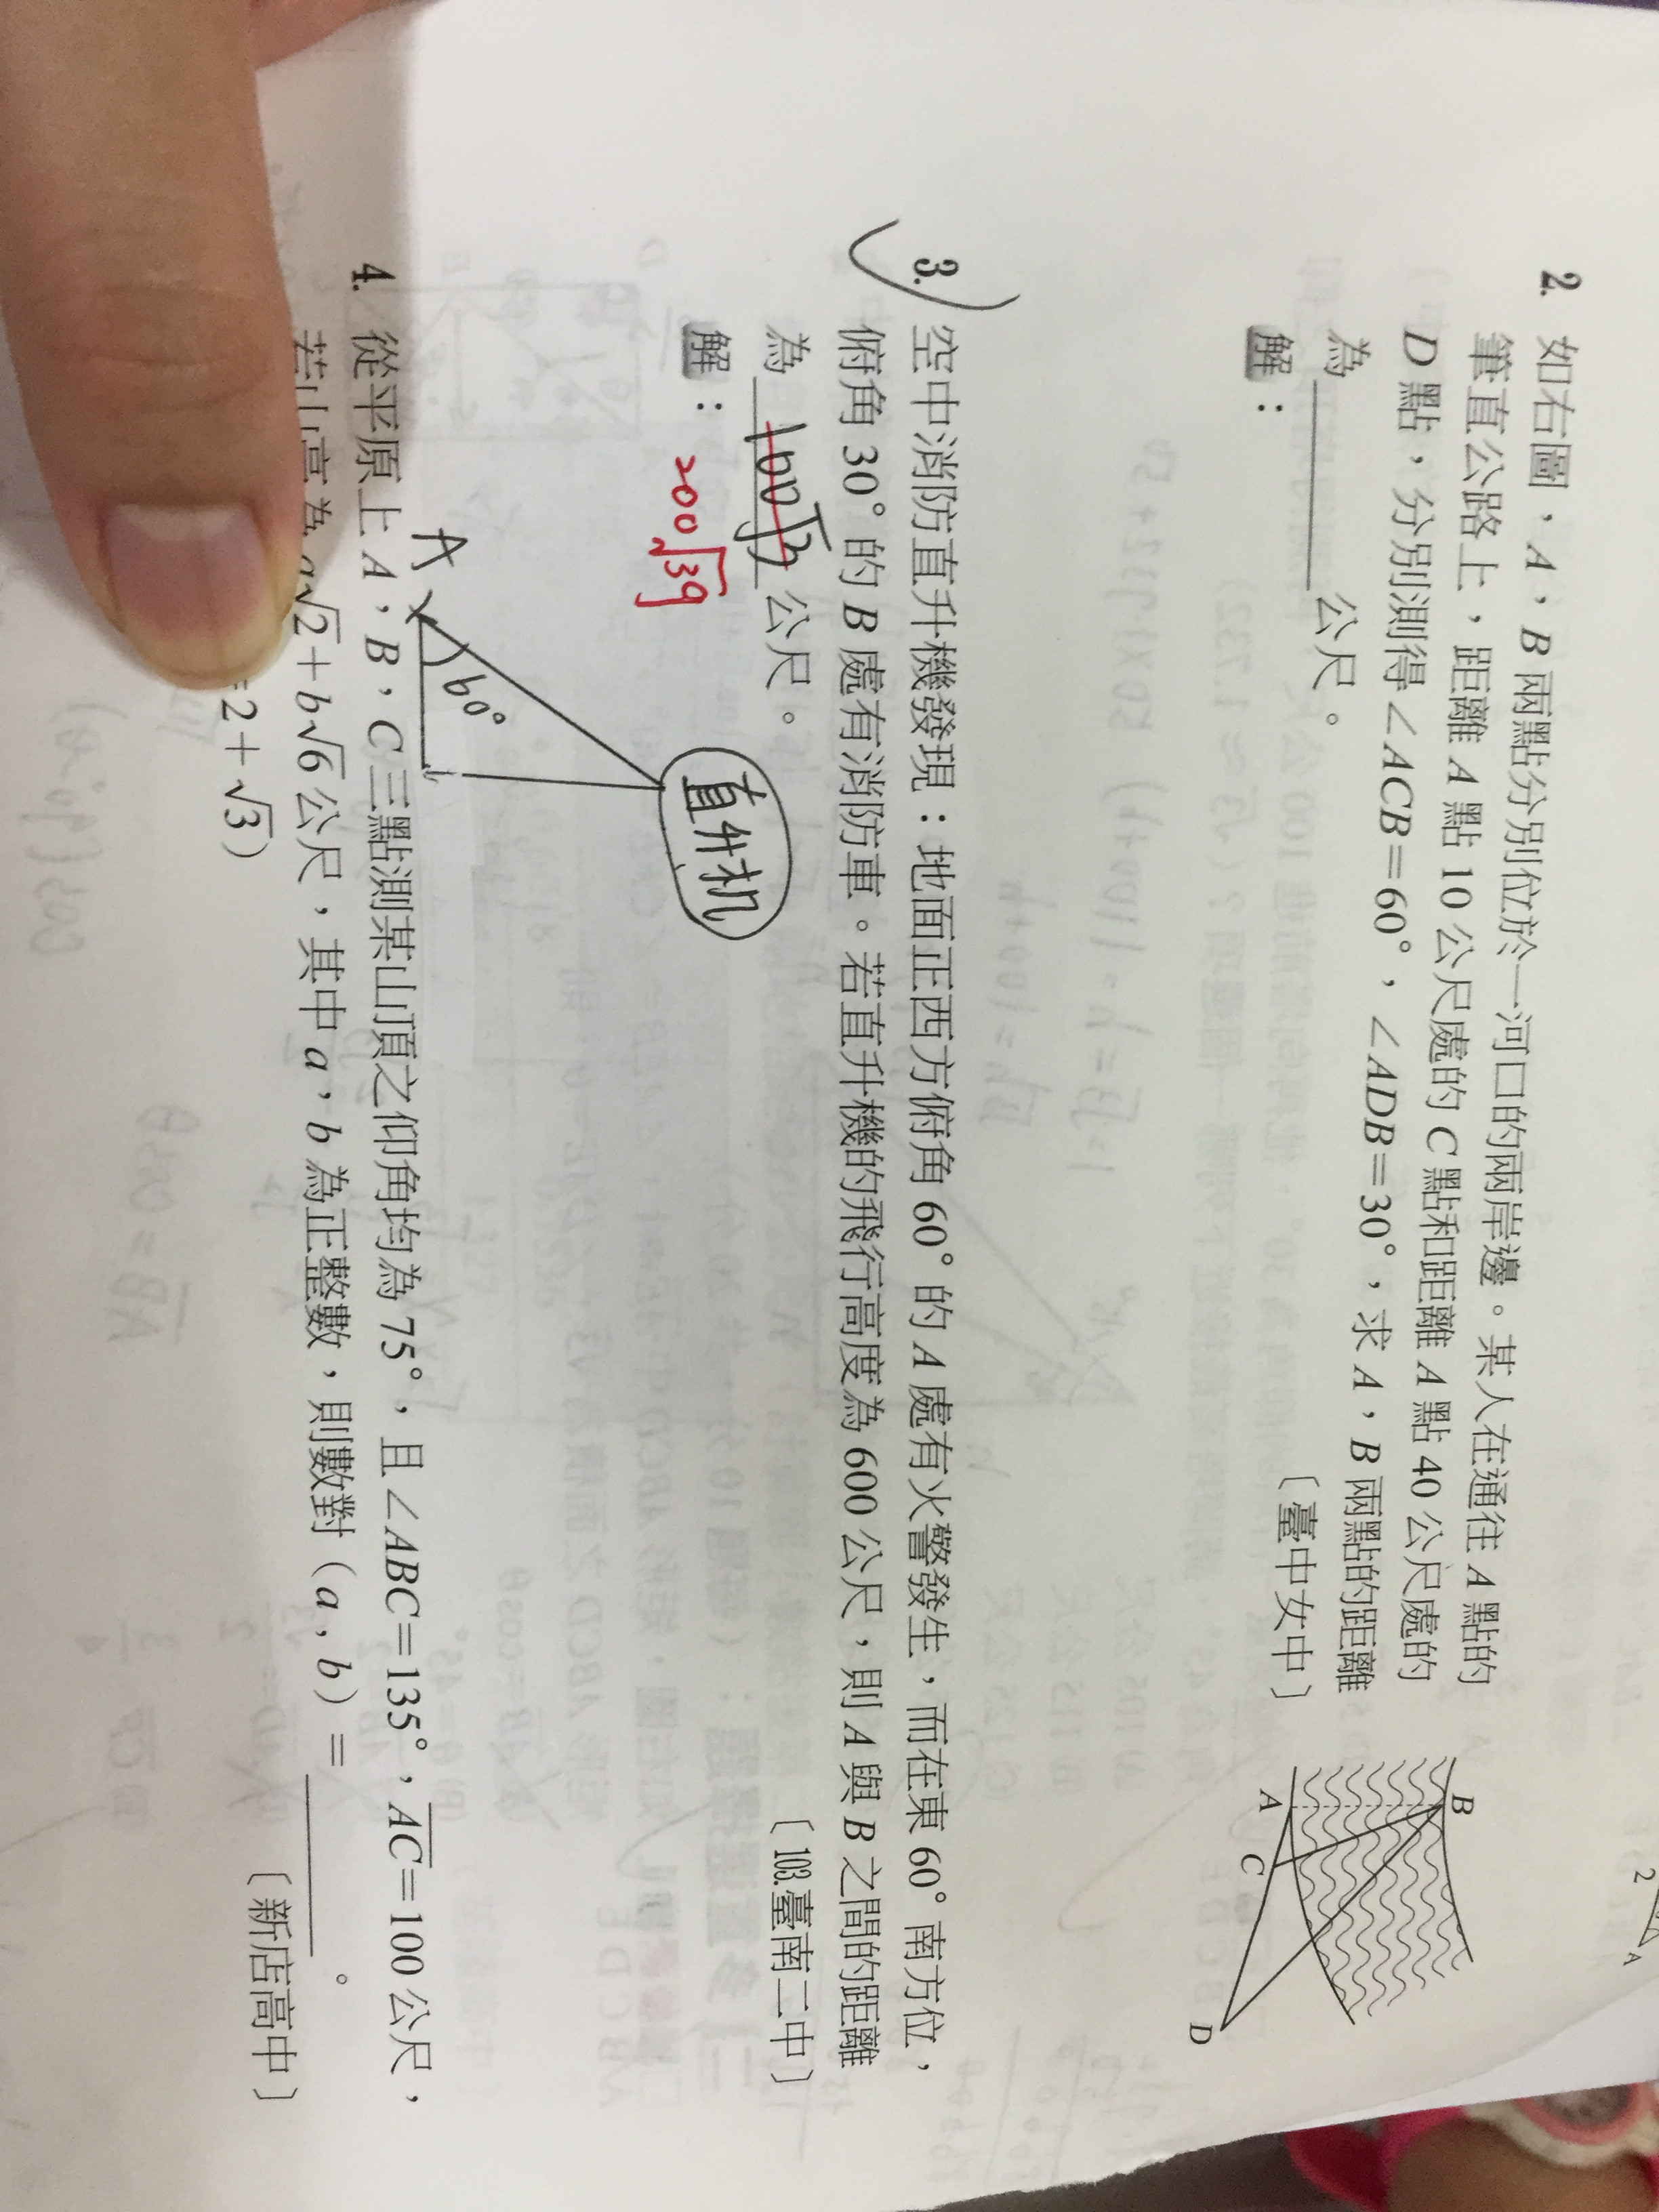 2. 如右圖，A，B 兩點分別位於一河口的兩岸邊。某人在通往 A 點的
筆直公路上，距離 A 點 10 公尺處的 C 點和距離 A 點 40 公尺處的
D 點，分別測得 ∠ACB=60°，∠ADB=30°，求 A，B 兩點的距離
為 ______ 公尺。
〔臺中女中〕
解：
B
A
C
D
2
A
3. 空中消防直升機發現：地面正西方俯角 60° 的 A 處有火警發生，而在東 60° 南方位，
俯角 30° 的 B 處有消防車。若直升機的飛行高度為 600 公尺，則 A 與 B 之間的距離
為 ______ 公尺。
〔103.臺南二中〕
200√39
解：
直升机
A
60°
4. 從平原上 A，B，C 三點測某山頂之仰角均為 75°，且 ∠ABC=135°，AC=100 公尺，
若山高為 a√2+b√6 公尺，其中 a，b 為正整數，則數對（a，b）= ______ 。
=2+√3）
〔新店高中〕